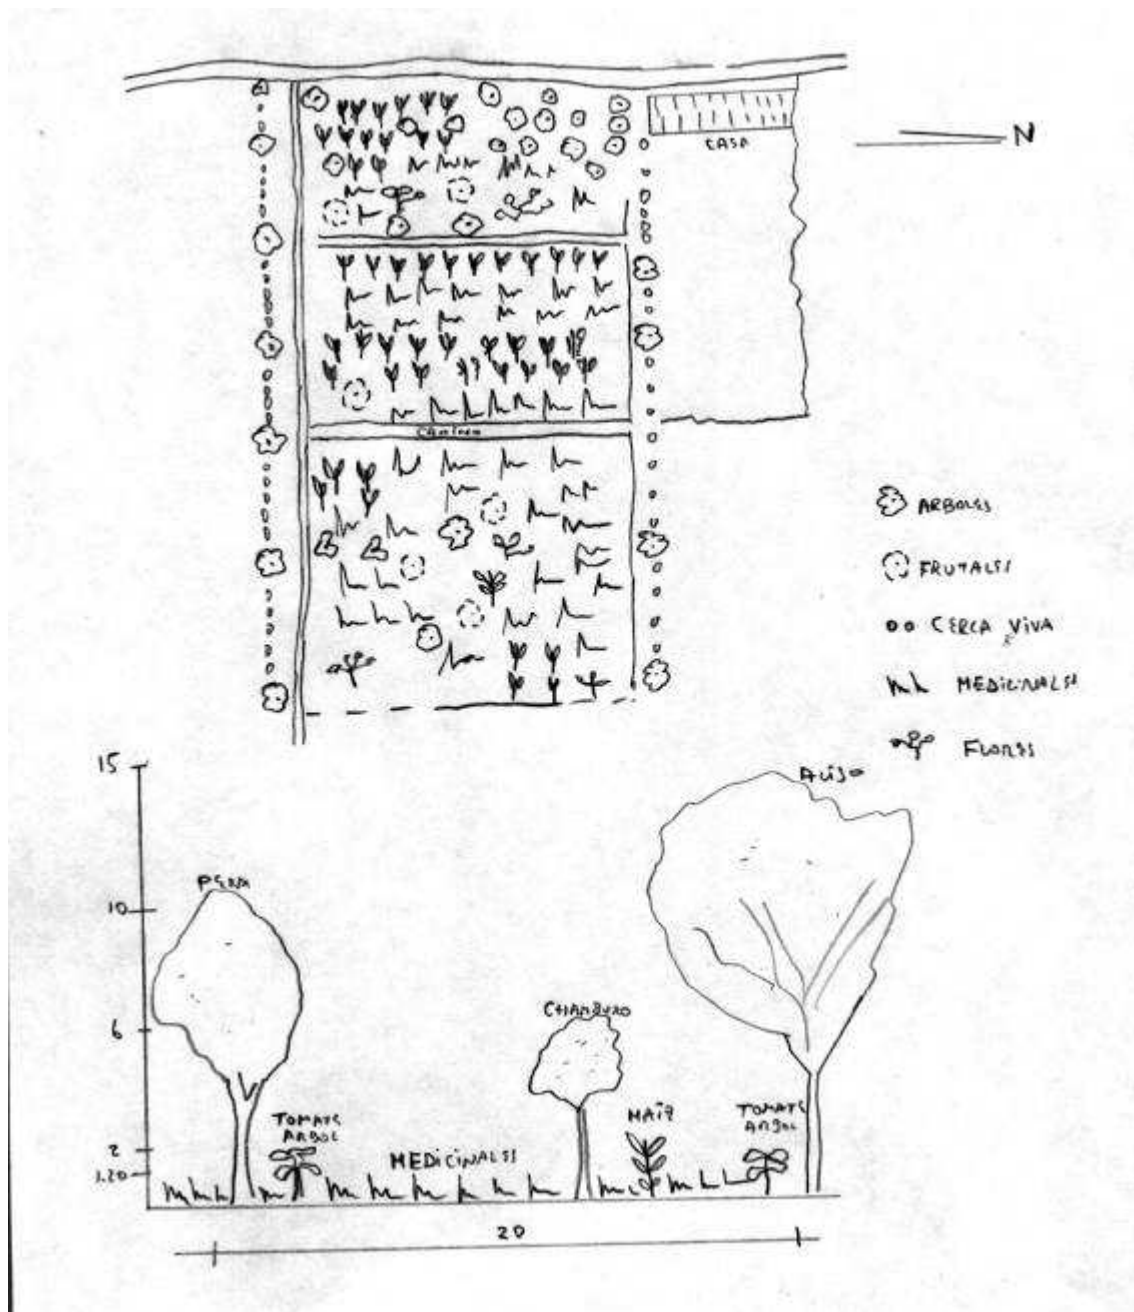 CASA
N
CAMINO
ARBOLES
FRUTALES
CERCA VIVA
MEDICINALES
FLORES
15
10
6
2
1.20
PERA
TOMATE
ARBOL
MEDICINALES
CHAMBURO
MAIZ
TOMATE
ARBOL
ALISO
20